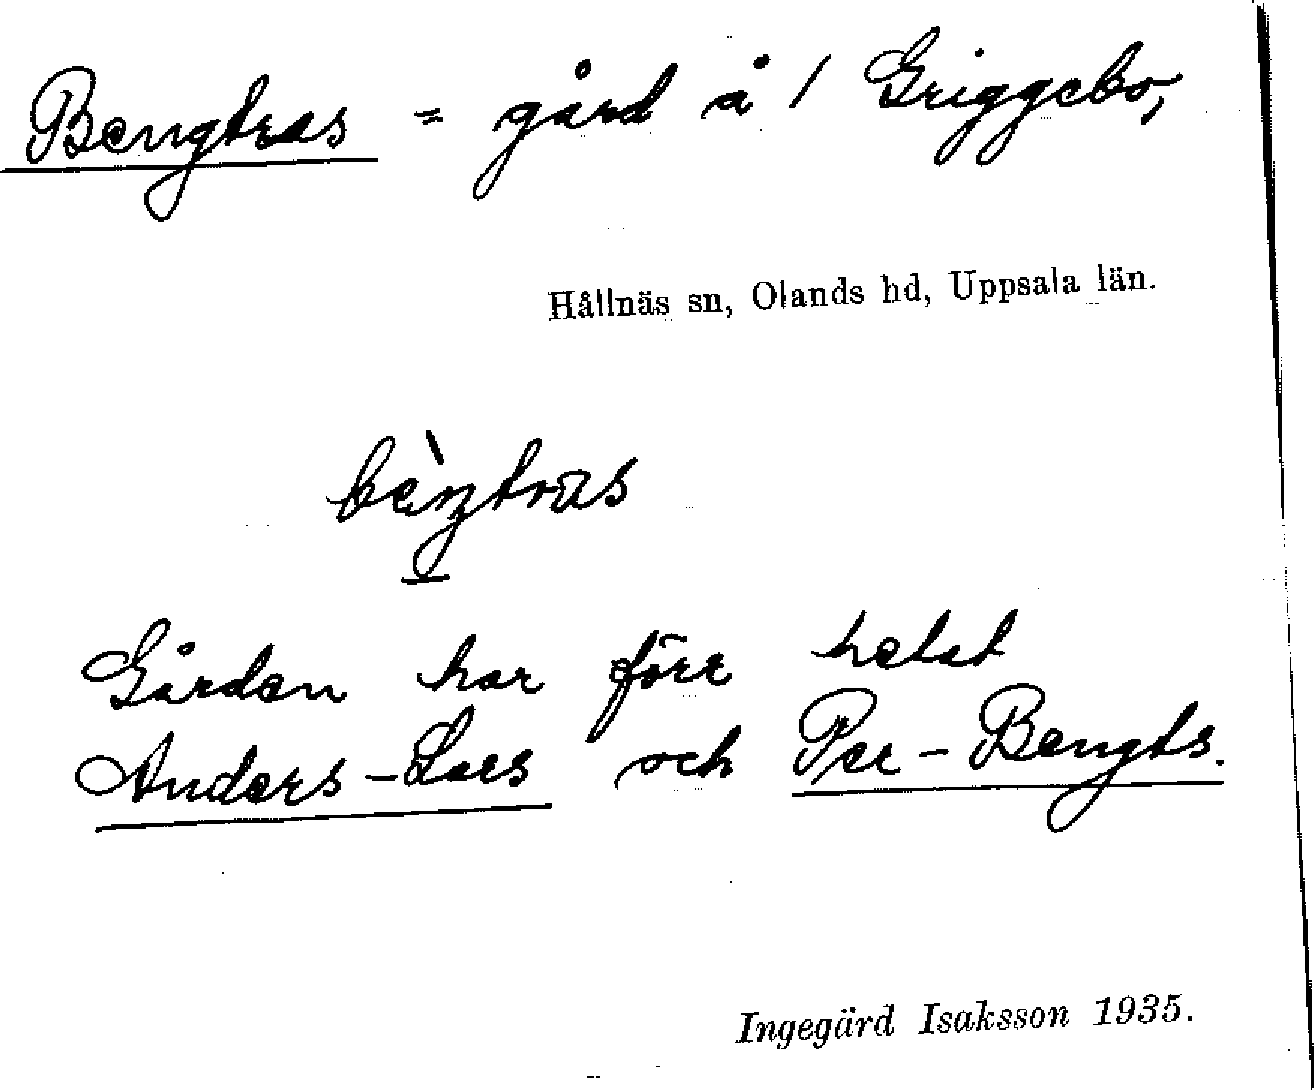 Bengtras = gård å / Griggebo,
Hållnäs sn, Olands hd, Uppsala län.
Gården har förr hetat
Anders-Lars och Per-Bengts.
Ingegärd Isaksson 1935.